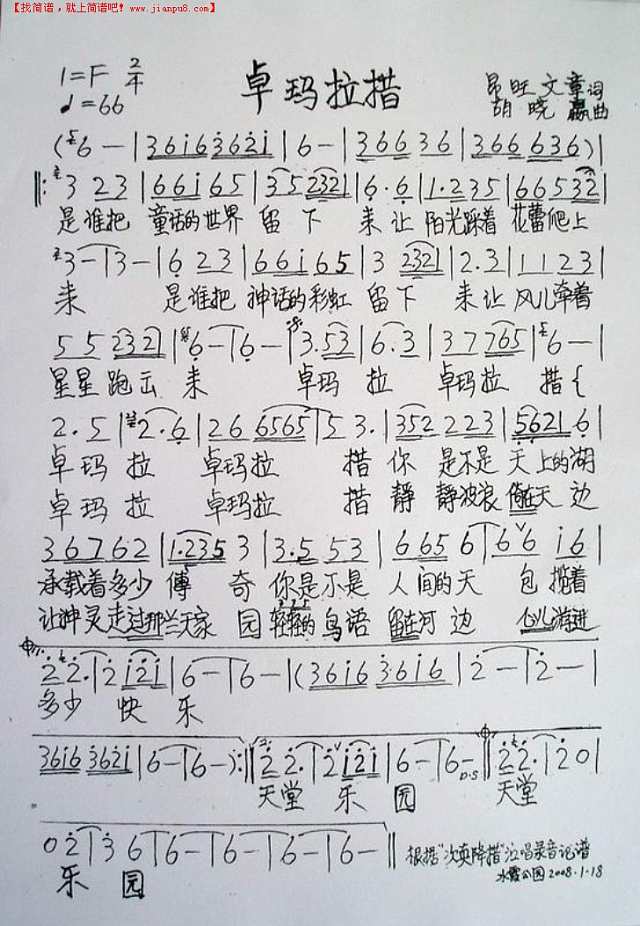 【找简谱，就上简谱吧! www.jianpu8.com】
1=F 2/4
♩=66
卓玛拉措
昂旺文章词
胡晓 曲
(6 — | 3 6 i 6 3 6 2 i | 6 — | 3 6 6 3 6 | 3 6 6 6 3 6) |
‖: 3 2 3 | 6 6 i 6 5 | 3 5 2 3 2 1 | 6 · 6 | 1 · 2 3 5 | 6 6 5 3 2 |
是谁把 童话的世界 留 下 来 让 阳光踩着 花蕾爬上
3 — | 3 — | 6 2 3 | 6 6 i 6 5 | 3 2 3 2 1 | 2 . 3 | 1 1 2 3 |
来 是谁把 神话的彩虹 留 下 来 让 风儿牵着
5 5 2 3 2 1 | 6 — | 6 — | 3 . 5 3 | 6 . 3 | 3 7 7 6 5 | 6 — |
星星跑云来 卓玛 拉 卓玛拉 措 {
2 . 5 | 2 . 6 | 2 6 6 5 6 5 | 5 3 . | 3 5 2 2 2 3 | 5 6 2 1 6 |
卓玛拉 卓玛拉 措 你 是不是 天上的湖
卓玛拉 卓玛拉 措 静 静波浪 倚在天 边
3 6 7 6 2 | 1 . 2 3 5 3 | 3 . 5 5 3 | 6 6 5 6 | 6 6 i 6 |
承载着多少 传 奇 你是不是 人间的天 包 揽着
让神灵走过那兰天家 园 轻轻的 鸟语 留在河 边 心儿游进
2 2 . | 2 i 2 i | 6 — | 6 — | (3 6 i 6 3 6 i 6 | 2 — | 2 — |
多少 快 乐
3 6 i 6 3 6 2 i | 6 — | 6 —) :‖ 2 2 . | 2 i 2 i | 6 — | 6 — D.S ‖ 2 2 . | 2 0 |
天堂 乐 园 天堂
0 2 | 3 6 | 6 — | 6 — | 6 — | 6 — | 6 — ‖ 根据"次央降措"泣唱录音记谱
乐 园 水霞公园 2008.1.18